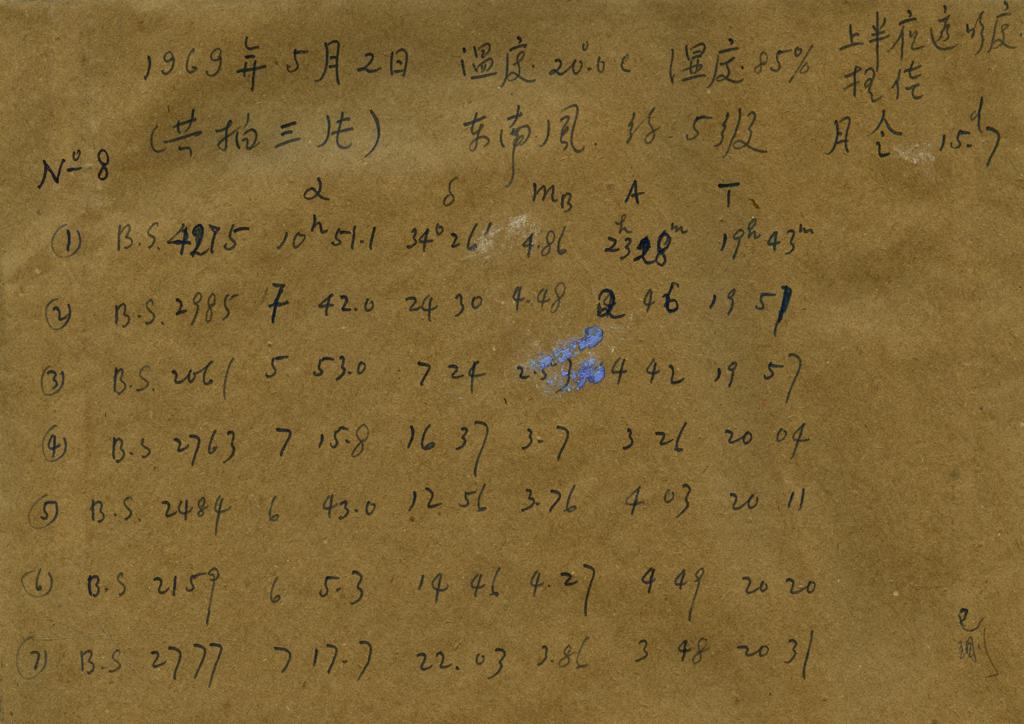 1969年5月2日 温度20°.0c 湿度85% 上半夜透明度
极佳
(共拍三片) 东南风 约5级 月令 15.ᵈ7
Nº 8
α δ mB A T
① B.S. 4275 10ʰ 51.1 34° 26′ 4.86 23ʰ28ᵐ 19ʰ 43ᵐ
② B.S. 2985 7 42.0 24 30 4.48 2 46 19 51
③ B.S. 2061 5 53.0 7 24 4 42 19 57
④ B.S 2763 7 15.8 16 37 3.7 3 26 20 04
⑤ B.S. 2484 6 43.0 12 56 3.76 4 03 20 11
⑥ B.S 2159 6 5.3 14 46 4.27 4 49 20 20
⑦ B.S 2777 7 17.7 22.03 3.86 3 48 20 31
已
测